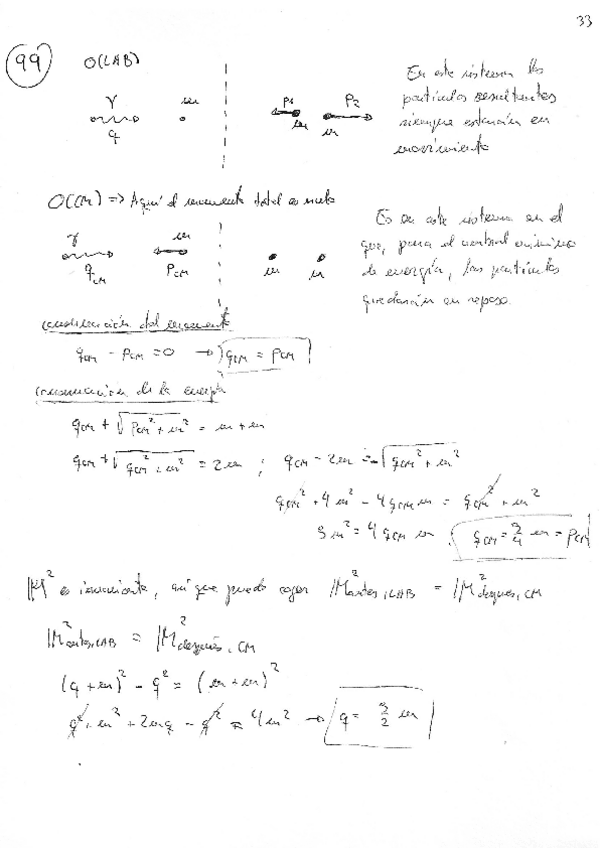 33
99
O(LAB)
γ m
q
P1 P2
m m
En este sistema las
partículas resultantes
siempre estarán en
movimiento
O(CM) => Aquí el momento total es nulo
γ m
qCM PCM
m m
Es en este sistema en el
que, para el umbral mínimo
de energía, las partículas
quedarán en reposo.
conservación del momento
qCM - PCM = 0 → qCM = PCM
conservación de la energía
qCM + √(PCM² + m²) = m + m
qCM + √(qCM² + m²) = 2m ; qCM - 2m = -√(qCM² + m²)
qCM² + 4m² - 4qCM m = qCM² + m²
3m² = 4qCM m qCM = 3/4 m = PCM
M² es invariante, así que puedo coger M²antes,LAB = M²después,CM
M²antes,LAB = M²después,CM
(q + m)² - q² = (m + m)²
q² + m² + 2mq - q² = 4m² → q = 3/2 m